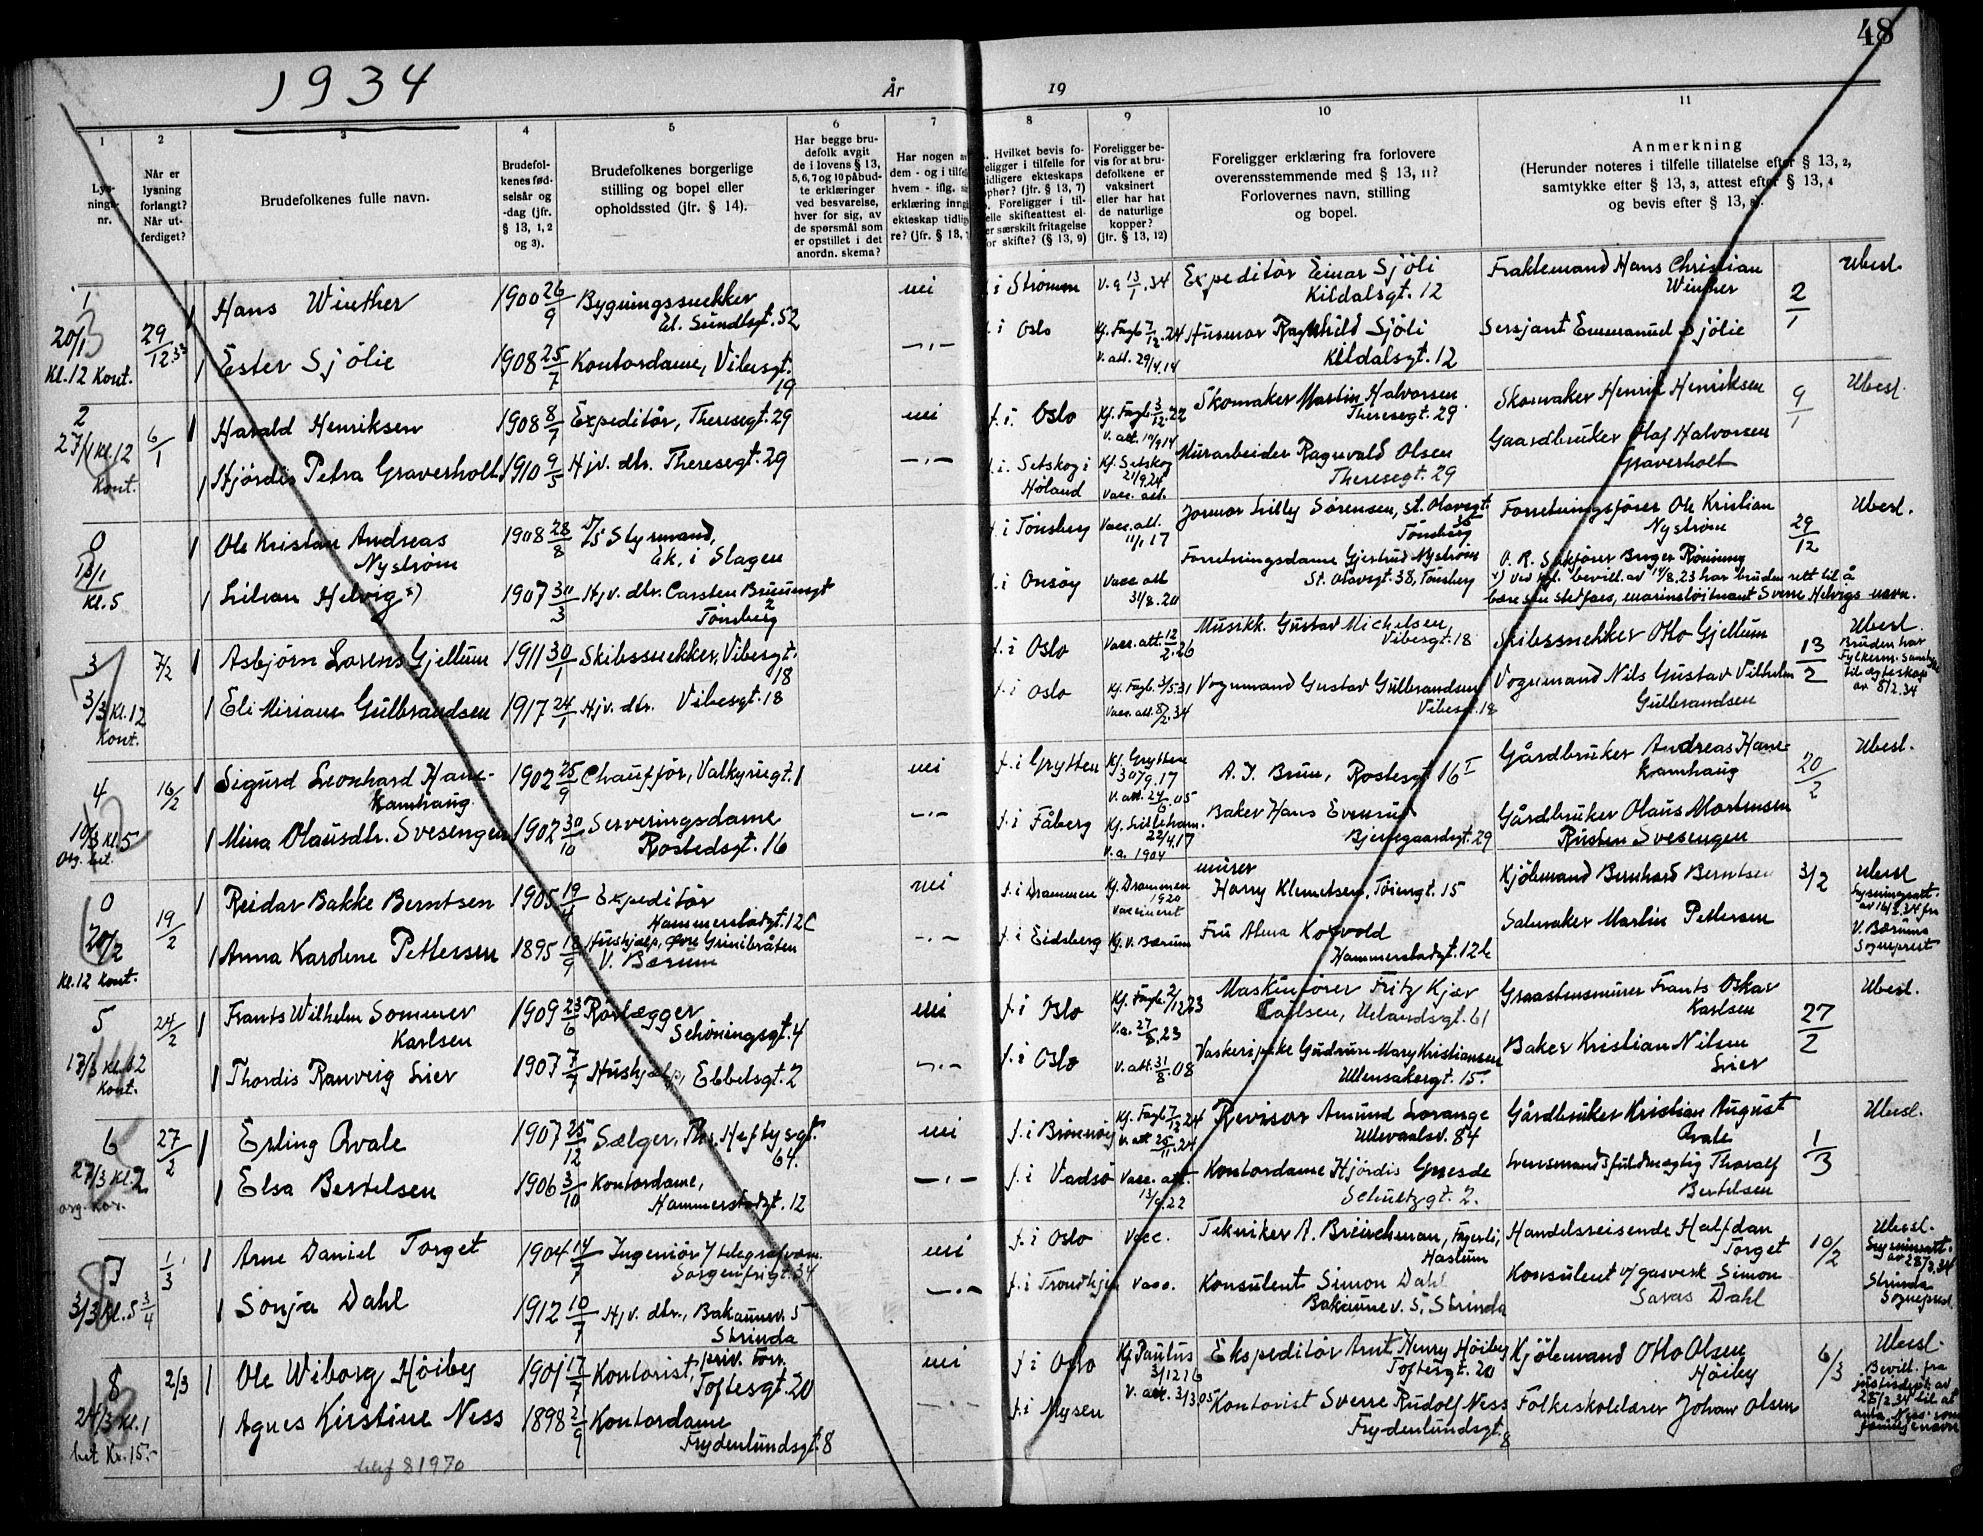 48
1934
År
19
1
2
3
4
5
6
7
8
9
10
11
Lys-
nings-
nr.
Når er
lysning
forlangt?
Når ut-
ferdiget?
Brudefolkenes fulle navn.
Brudefol-
kenes fød-
selsår og
-dag (jfr.
§ 13, 1, 2
og 3).
Brudefolkenes borgerlige
stilling og bopel eller
opholdssted (jfr. § 14).
Har begge bru-
defolk avgit
de i lovens § 13,
5, 6, 7 og 10 påbud-
te erklæringer
ved besvarelse,
hver for sig, av
de spørsmål som
er opstillet i det
anordn. skema?
Har nogen av
dem - og i tilfel
hvem - iflg. si
erklæring inng
ekteskap tidlig
re? (jfr. § 13,
Hvilket bevis fo-
religger i tilfelle for
tidligere ekteskaps
ophør? (jfr. § 13, 7)
Foreligger i til-
felle skifteattest el-
er særskilt fritagelse
for skifte? (§ 13, 9)
Foreligger be-
vis for at bru-
defolkene er
vaksinert
eller har hat
de naturlige
kopper?
(jfr. § 13, 12)
Foreligger erklæring fra forlovere
overensstemmende med § 13, 11?
Forlovernes navn, stilling
og bopel.
Anmerkning
(Herunder noteres i tilfelle tillatelse efter § 13, 2,
samtykke efter § 13, 3, attest efter § 13, 4
og bevis efter § 13,
1
20/1
Kl. 12 Kont.
29/12 33
1 Hans Winther 1900 26/9 Bygningssnekker
El. Sundtsgt. 52
nei
f. i Strømm V. a 13/1.34 Expeditør Einar Sjöli
Kildalsgt. 12
Fraktemand Hans Christian
Winther
2/1
Ubesl.
1 Ester Sjölie 1908 25/7 Kontordame, Vibesgt.
19
—"—
f. i Oslo Kf. Fagb 7/12.24
V. att. 29/4.14
Husmor Ragnhild Sjöli
Kildalsgt. 12
Sersjant Emmanuel Sjölie
2
27/1 Kl. 12
Kont.
6/1
1 Harald Henriksen 1908 8/7 Expeditör, Theresegt. 29
nei
f. i. Oslo Kf. Fagb. 3/12.22
V. att. 10/9 14
Skomaker Martin Halvorsen
Theresegt. 29
Skomaker Henrik Henriksen
9/1
Ubesl.
1 Hjördis Petra Graverholt 1910 9/5 Hjv. dtr. Theresegt. 29
—"—
f. i. Setskog i
Høland
Kf. Setskog
21/9.24
Vacc. att.
Murarbeider Ragnvald Olsen
Theresegt. 29
Gaardbruker Olaf Halvorsen
Graverholt
0
13/1
Kl. 5
1 Ole Kristian Andreas
Nyström
1908 28/8 Styrmand,
Ek, i Slagen
f. i Tönsberg Vacc. att.
11/1 17
Jormor Lilly Sörensen, St. Olavsgt.
36
Tönsberg
Forretningsfører Ole Kristian
Nyström
29/12
Ubesl.
1 Lilian Helvig x) 1907 30/3 Hjv. dtr. Carsten Bruunsgt
2
Tönsberg
f. i Onsöy Vacc. att
31/8.20
Forretningsdame Gjertrud Nyström
St. Olavsgt. 38, Tönsberg
O. R. Sakförer Birger Rönning
x) Ved kgl. bevill. av 14/8.23 har bruden rett til å
bære sin stedfars, marinelöitnant Sverre Helvigs navn.
3
3/3 Kl. 12
Kont.
7/2
1 Asbjörn Lorens Gjellum 1911 30/1 Skibssnekker, Vibesgt.
18
f. i Oslo Vacc. att. 12/2.26
Musikk. Gustav Michelsen
Vibesgt. 18
Skibssnekker Otto Gjellum
13/2
Ubesl.
Bruden har
Fylkesm. samtykke
til egteskap
av 5/2.34
1 Eli Miriam Gulbrandsen 1917 24/1 Hjv. dtr. Vibesgt. 18
f. i Oslo Kf. Fagb. 3/5.31
Vacc. att. 8/2.34
Vognmand Gustav Gulbrandsen
Vibesgt. 18
Vognmand Nils Gustav Vilhelm
Gulbrandsen
4
10/3 Kl. 5
Org. bet.
16/2
1 Sigurd Leonhard Hane-
kamhaug
1902 25/9 Chauffør, Valkyriegt. 1
nei
f. i Grytten Kf. Grytten
30/9.17
V. att. 24/6.05
A. J. Brun, Rostesgt 16 I
Gårdbruker Andreas Hane-
kamhaug
20/2
Ubesl.
1 Mina Olausdtr. Svesengen 1902 30/10 Serveringsdame
Rostedsgt. 16
—"—
f. i Fåberg Kf. Lilleham.
22/4.17
V. a. 1904
Baker Hans Evensrud
Bjerregaardsgt. 29
Gårdbruker Olaus Mortensen
Rusten Svesengen
0
20/2
Kl. 12 Kont.
19/2
1 Reidar Bakke Berntsen 1905 19/4 Expeditör
Hammerstadgt. 12 C
nei
f. i Drammen Kf. Drammen
1920
Vaccineret
murer
Harry Klemetsen, Töiengt. 15
Kjöbmand Bernhard Berntsen
3/2
Ubesl
Lysningsatt.
av 16/2.34 fra
V. Bærums
Sogneprest
1 Anna Karoline Pettersen 1895 18/9 Hushjælp, Övre Grinibråten
V. Bærum
—"—
f. i Eidsberg Kf. V. Bærum
Fru Alma Korvold
Hammerstadgt. 12 c
Salmaker Martin Pettersen
5
17/3 Kl. 12
Kont.
24/2
1 Frants Wilhelm Sommer
Karlsen
1909 23/6 Rörlægger
Schöningsgt. 4
nei
f. i Oslo Kf. Fagb. 2/12 23
V. a. 27/8.23
Maskinförer Fritz Kjær
Carlsen, Uelandsgt. 61
Graastensmurer Frants Oskar
Karlsen
27/2
Ubesl.
1 Thordis Ranveig Lier 1907 7/7 Hushjælp, Ebbelsgt. 2
—"—
f. i Oslo V. att. 31/8.08
Vaskeripike Gudrun Mary Kristiansen
Ullensakergt. 15.
Baker Kristian Nilsen
Lier
6
27/3 Kl. 2
org. kor.
27/2
1 Erling Qvale 1907 25/12 Sælger, Ths. Heftysgt.
64.
nei
f. i Brönnöy Kf. Fagb 7/12 24
V. att 25/11.24
Revisor Amund Lorange
Ullevaalsv. 84
Gårdbruker Kristian August
Qvale
1/3
Ubesl.
1 Elsa Bertelsen 1906 3/10 Kontordame,
Hammerstadgt. 12
—"—
f. i Vadsö Vacc. att.
13/9.22
Kontordame Hjördis Gnesde
Schultzgt. 2.
Lensmandsfuldmægtig Thoralf
Bertelsen
7
3/3 Kl. 5 3/4
1/3
1 Arne Daniel Torget 1904 14/7 Ingeniör v/ telegrafvæs.
Sorgenfrigt. 34
nei
f. i Oslo Vacc.
Tekniker A. Breichman, Fagerli,
Haslum
Handelsreisende Halfdan
Torget
10/2
Ubesl.
Lysningsatt.
av 28/2.34
Strinda
Sogneprest
1 Sonja Dahl 1912 10/7 Hjv. dtr., Bakaunev. 5
Strinda
—"—
f. i Trondhjem Vacc.
Konsulent Simon Dahl
Bakaune v. 5, Strinda
Konsulent v/ gasverk Simon
Savas Dahl
8
24/3 Kl. 1
bet Kr. 15.-
2/3
1 Ole Wiborg Höiby 1901 17/7 Kontorist, priv. Forr.
Toftesgt. 20
nei
f. i Oslo Kf Paulus
3/12 16
V. att. 3/3 05
Ekspeditör Arnt Henry Höiby
Toftesgt. 20
Kjöbmand Otto Olsen
Höiby
6/3
Ubesl.
Bevill. fra
justisdept. av
28/2.34 til at
anta "Ness" som
familjenavn
1 Agnes Kirstine Ness 1898 2/9 Kontordame
Frydenlundsgt. 8
—"—
f. i Mysen
Kontorist Sverre Rudolf Ness
Frydenlundsgt.
8
Folkeskolelærer Johan Olsen
81970